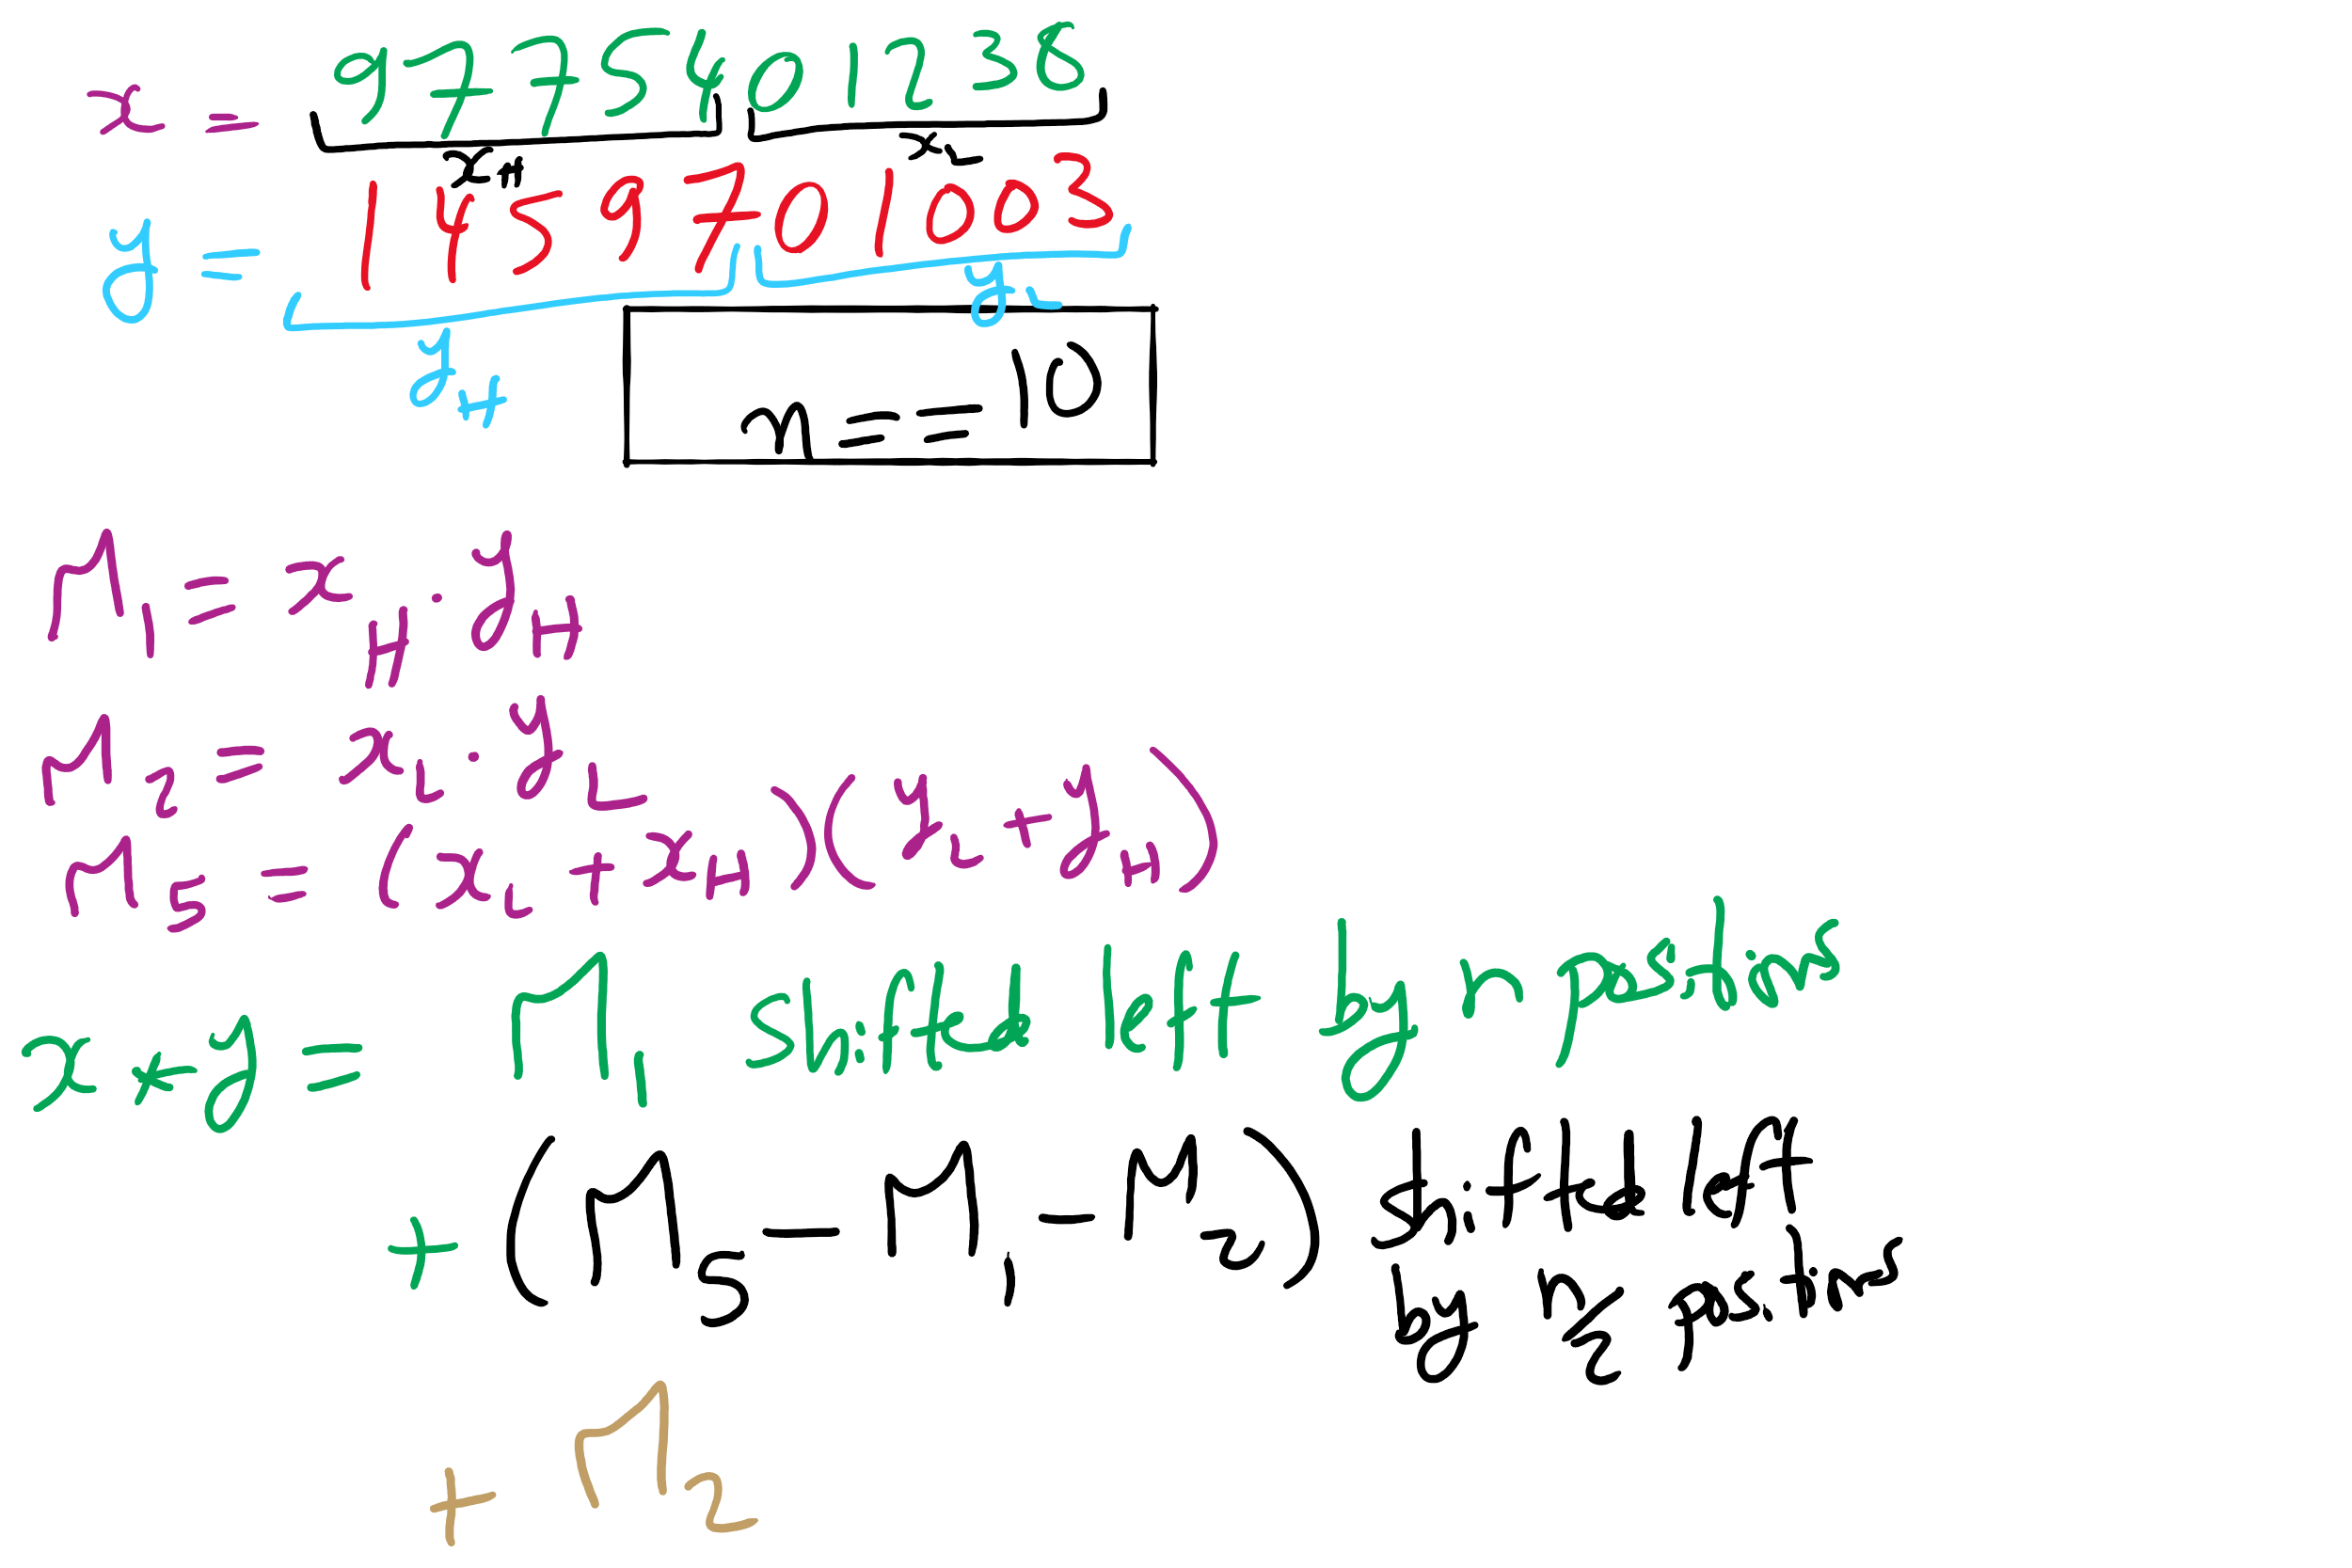 x = 9775401238
x_H x_L
y = 1459701003
y_H y_L
n = = 10
M_1 = x_H · y_H
M_2 = x_L · y_L
M_5 = (x_L + x_H)(y_L + y_H)
x * y = M_1 shifted left by n positions
+ (M_5 - M_1 - M_2) shifted left
by n/2 positions
+ M_2